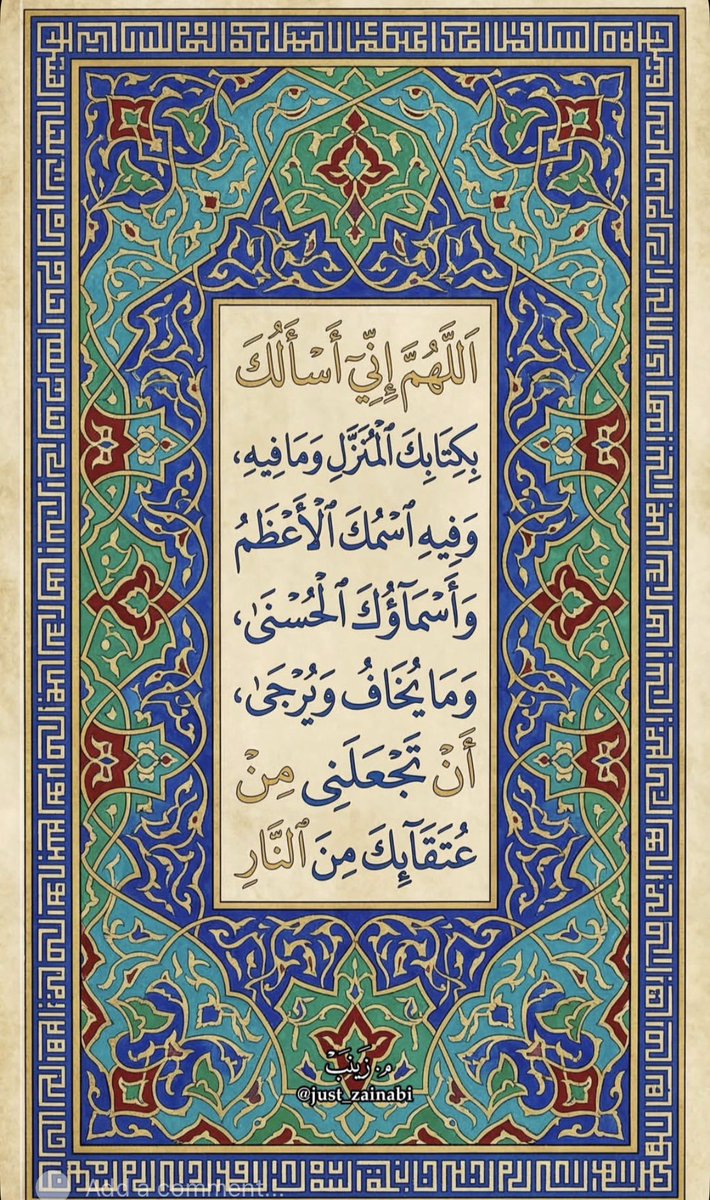 اَللَّهُمَّ إِنِّيٓ أَسْأَلُكَ
بِكِتَابِكَ ٱلْمُنَزَّلِ وَمَا فِيهِ،
وَفِيهِ ٱسْمُكَ ٱلْأَعْظَمُ
وَأَسْمَآؤُكَ ٱلْحُسْنَىٰ،
وَمَا يُخَافُ وَيُرْجَىٰ،
أَنْ تَجْعَلَنِى مِنْ
عُتَقَآئِكَ مِنَ ٱلنَّارِ
م. زَيْنَبْ
@just_zainabi
Add a comment...